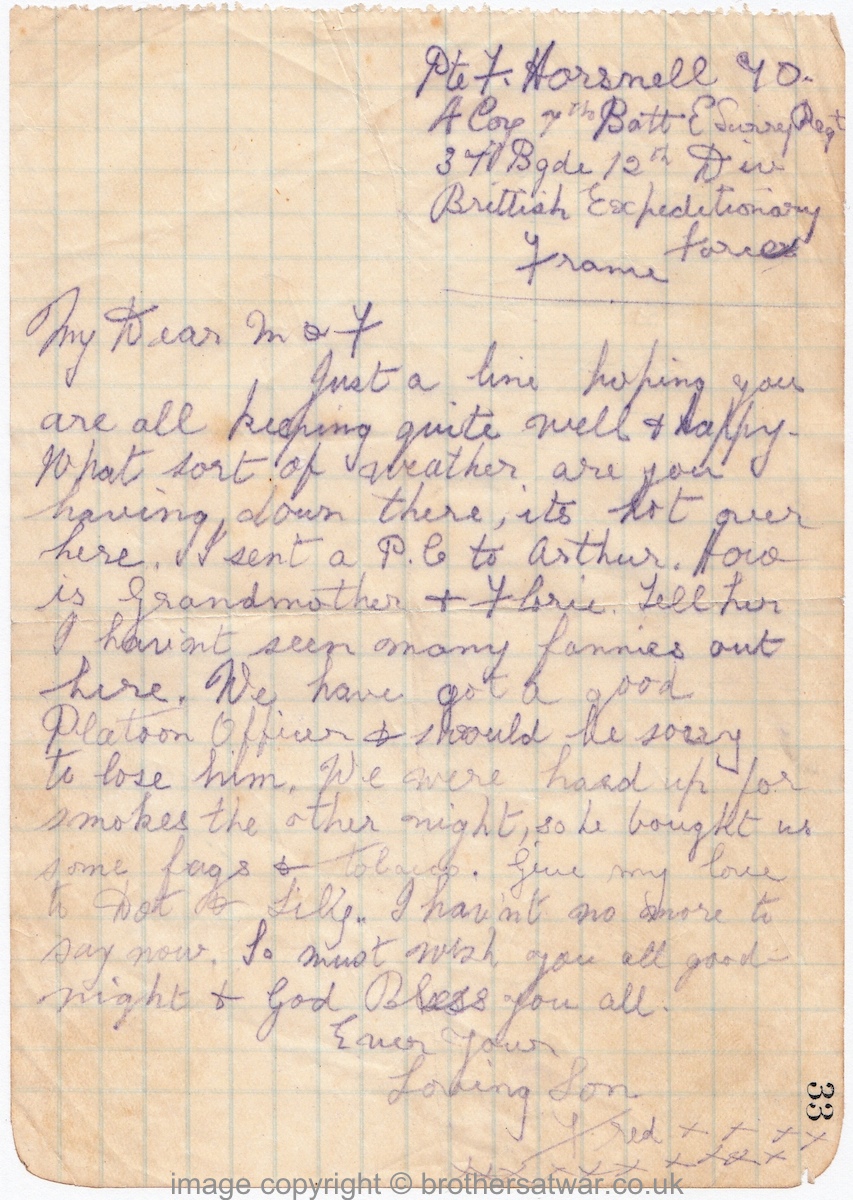 Pte F. Horsnell 70.
A Coy 7th Batt E Surrey Regt
37th Bgde 12th Div
Brittish Expeditionary
Forces
France
My Dear M & F
Just a line hoping you
are all keeping quite well & happy.
What sort of weather are you
having down there, its hot over
here. I sent a P.C to Arthur. How
is Grandmother + Florie. Tell her
I havint seen many fannies out
here. We have got a good
Platoon Officer & should be sorry
to lose him. We were hard up for
smokes the other night, so he bought us
some fags & tobacco. Give my love
to Dot &
I hav'nt no more to
say now. So must wish you all good-
night & God Bless you all.
Ever Your
Loving Son
Fred x x x x
33
image copyright © brothersatwar.co.uk